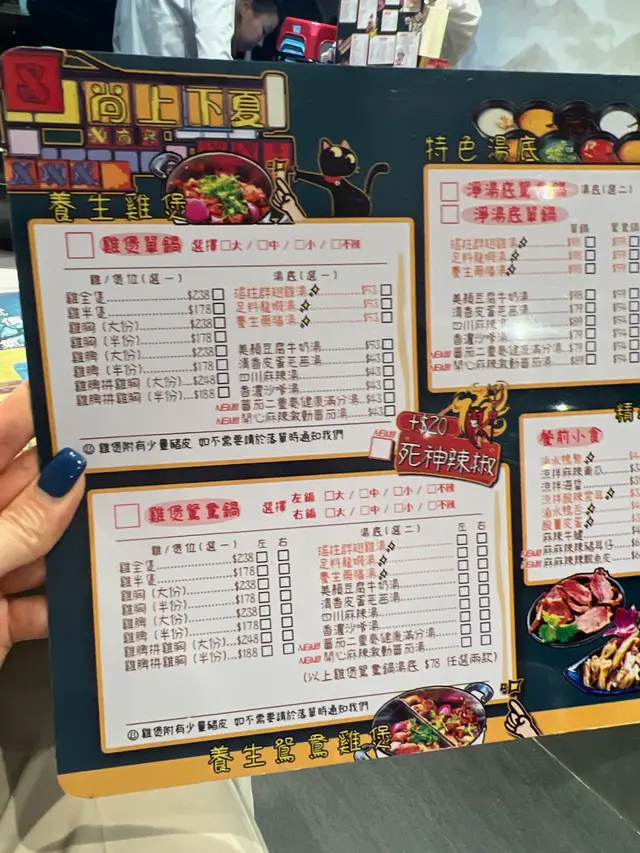 尚上下夏
養生雞煲
雞煲單鍋 選擇 □大 / □中 / □小 / □不辣
雞 / 煲位 (選一)
雞全煲 $238
雞半煲 $178
雞胸 (大份) $238
雞胸 (半份) $178
雞髀 (大份) $238
雞髀 (半份) $178
雞髀拼雞胸 (大份) $248
雞髀拼雞胸 (半份) $188
湯底 (選一)
瑤柱群翅雞湯 $53
足料龍蝦湯 $53
養生藥膳湯 $53
美顏豆腐牛奶湯 $53
清香皮蛋芫茜湯 $43
四川麻辣湯 $43
香濃沙爹湯 $43
NEW!! 番茄二重奏健康滿分湯 $43
NEW!! 開心麻辣激動番茄湯 $43
雞煲附有少量豬皮 如不需要請於落單時通知我們
+$20
死神辣椒
雞煲鴛鴦鍋 選擇
左鍋 □大 / □中 / □小 / □不辣
右鍋 □大 / □中 / □小 / □不辣
雞 / 煲位 (選一) 左 右
雞全煲 $238
雞半煲 $178
雞胸 (大份) $238
雞胸 (半份) $178
雞髀 (大份) $238
雞髀 (半份) $178
雞髀拼雞胸 (大份) $248
雞髀拼雞胸 (半份) $188
湯底 (選二) 左 右
瑤柱群翅雞湯
足料龍蝦湯
養生藥膳湯
美顏豆腐牛奶湯
清香皮蛋芫茜湯
四川麻辣湯
香濃沙爹湯
NEW!! 番茄二重奏健康滿分湯
NEW!! 開心麻辣激動番茄湯
(以上雞煲鴛鴦鍋湯底 $78 任選兩款)
雞煲附有少量豬皮 如不需要請於落單時通知我們
養生鴛鴦雞煲
特色湯底
淨湯底鴛鴦鍋 湯底 (選二)
淨湯底單鍋
單鍋 鴛鴦鍋
瑤柱群翅雞湯
足料龍蝦湯
養生藥膳湯
美顏豆腐牛奶湯
清香皮蛋芫茜湯
四川麻辣湯
香濃沙爹湯
NEW!! 番茄二重奏健康滿分湯
NEW!! 開心麻辣激動番茄湯
餐前小食
涼拌麻辣青瓜
涼拌海蜇
涼拌酸辣雲耳
滷水鴨舌
酸薑皮蛋
麻辣牛𦟌
麻麻辣辣豬耳仔
麻麻辣辣鯇魚皮